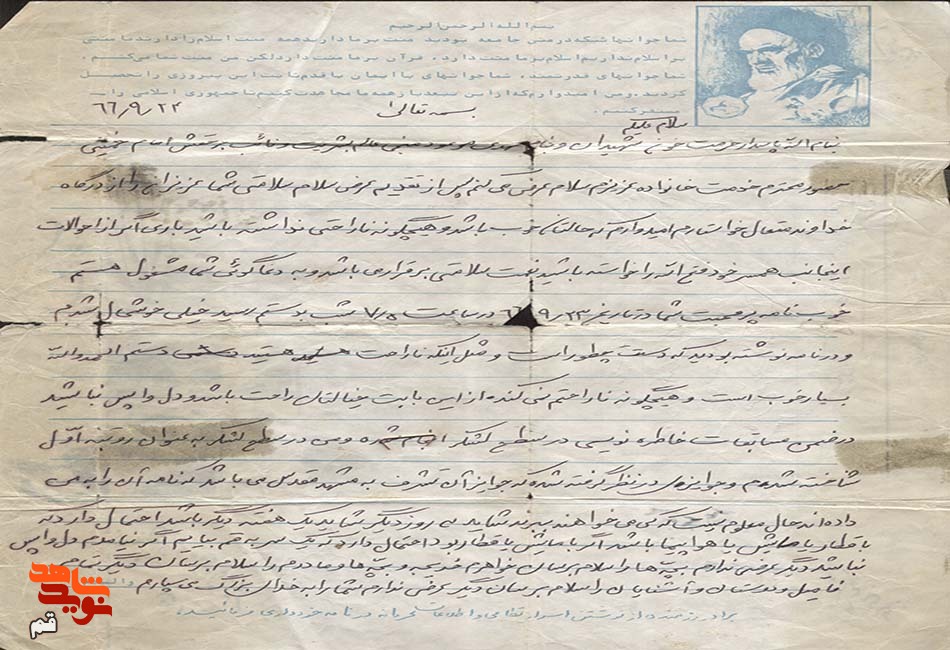 بسم الله الرحمن الرحیم
شما جوانها شبکه در متن جامعه بودید منت بر ما دارید همه منت اسلام را دارند ما منتی
بر اسلام نداریم اسلام بر ما منت دارد، قرآن بر ما منت دارد لکن من منت شما می‌کشم.
شما جوانهای قدرتمند، شما جوانهای با ایمان با قدمتان این پیروزی را تحصیل
کردید، و من امیدوارم که از این به بعد با همه مجاهدت کنیم تا جمهوری اسلامی را
۶۶/۹/۲۴
بسمه تعالی
سلام علیکم
بنام الله پاسدار حرمت خون شهیدان و منجی عالم بشریت و نائب بر حقش امام خمینی
حضور محترم خدمت خانواده عزیزم سلام عرض می کنم پس از تقدیم عرض سلام سلامتی شما عزیزانی را از درگاه
خداوند متعال خواستارم امیدوارم که حالتان خوب باشد و هیچگونه ناراحتی نداشته باشید باری اگر از احوالات
اینجانب همسر خود فتح الله را خواسته باشید نعمت سلامتی برقرار می باشد و به دعاگوئی شما مشغول هستم
خوب نامه پر محبت شما در تاریخ ۶۶/۹/۲۳ در ساعت ۷/۵ شب بدستم رسید خیلی خوشحال شدم
و در نامه نوشته بودید که دستت چطور است و مثل اینکه ناراحت هستید دستم الحمدوالله
بسیار خوب است و هیچگونه ناراحتم نمی کند از این بابت خیالتان راحت باشد و دل واپس نباشید
در ضمن مسابقات خاطره نویسی در سطح لشگر انجام شده و من در سطح لشگر به عنوان رتبه اول
شناخته شدم و جوایزی در نظر گرفته شده که جوایز آن تشرف به مشهد مقدس می باشد که نامه آن را به من
داده اند حال معلوم نیست که کی می خواهند ببرند شاید سه روز دیگر شاید یک هفته دیگر باشد احتمال دارد که
با قطار یا ماشین یا هواپیما باشد اگر با ماشین یا قطار بود احتمال دارد که یک سر به قم بیایم اگر نیامدم دل واپس
نباشید دیگر عرضی ندارم بچه ها را سلام برسان خواهرم خدیجه و بچه ها و مادرم را سلام برسان دیگر تمام
فامیل و دوستان و آشنایان را سلام برسان دیگر عرضی ندارم شما را به خدای بزرگ می سپارم والسلام
برادر رزمنده از نوشتن اسرار نظامی و اطلاعات محرمانه در نامه خودداری فرمائید.
نوید شاهد
قم